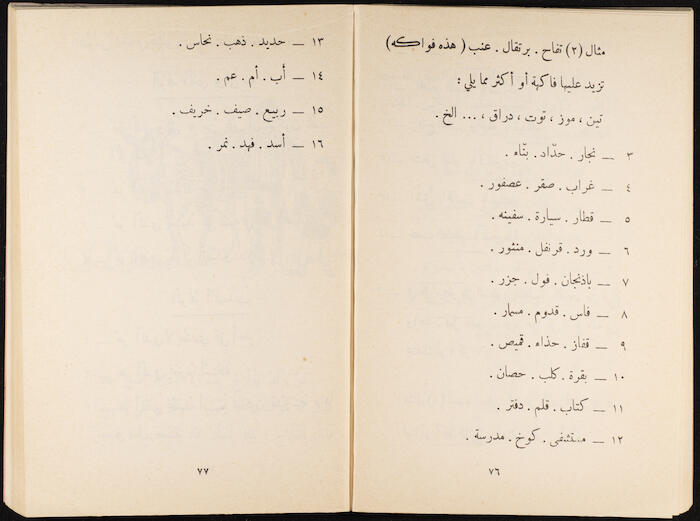 مثال (٢) تفاح . برتقال . عنب ( هذه فواكه)
تزيد عليها فاكهة أو أكثر مما يلي :
تين ، موز ، توت ، دراق ، ... الخ .
٣ — نجار . حدّاد . بنّاء .
٤ — غراب . صقر . عصفور .
٥ — قطار . سيارة . سفينه .
٦ — ورد . قرنفل . منثور .
٧ — باذنجان . فول . جزر .
٨ — فاس . قدوم . مسمار .
٩ — قفاز . حذاء . قميص .
١٠ — بقرة . كلب . حصان .
١١ — كتاب . قلم . دفتر .
١٢ — مستشفى . كوخ . مدرسة .
٧٦
١٣ — حديد . ذهب . نحاس .
١٤ — أب . أم . عم .
١٥ — ربيع . صيف . خريف .
١٦ — أسد . فهد . نمر .
٧٧